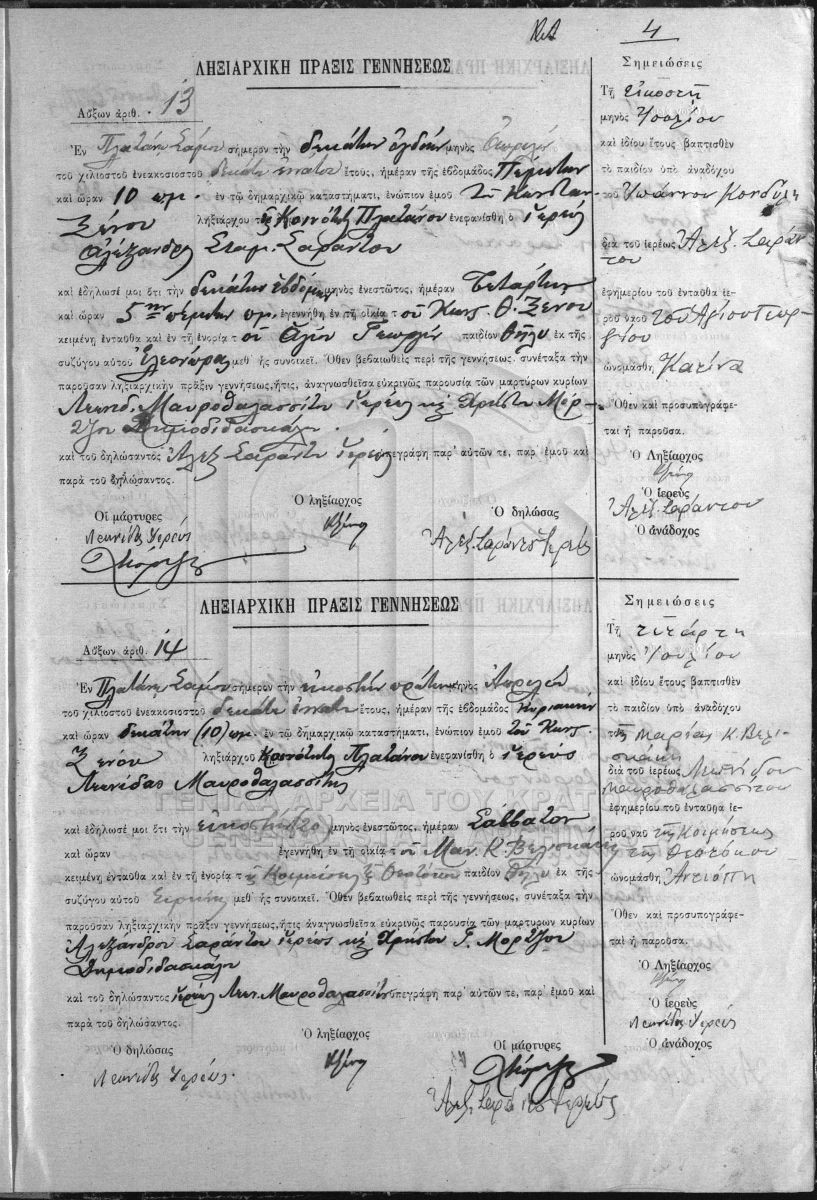 4
ΛΗΞΙΑΡΧΙΚΗ ΠΡΑΞΙΣ ΓΕΝΝΗΣΕΩΣ
Αὔξων ἀριθ. 13
Ἐν Πλατάνῳ Σάμου σήμερον τὴν δεκάτην ὀγδόην μηνὸς Ἀπριλίου
τοῦ χιλιοστοῦ ἐνεακοσιοστοῦ δεκάτου ἐννάτου ἔτους, ἡμέραν τῆς ἑβδομάδος Πέμπτην
καὶ ὥραν 10 π.μ. ἐν τῷ δημαρχικῷ καταστήματι, ἐνώπιον ἐμοῦ τοῦ Κωνσταν-
Ξένου ληξιάρχου τῆς Κοινότητος Πλατάνου ἐνεφανίσθη ὁ ἱερεὺς
Ἀλέξανδρος Σταμ. Σαράντου
καὶ ἐδήλωσέ μοι ὅτι τὴν δεκάτην ἑβδόμην μηνὸς ἐνεστῶτος, ἡμέραν Τετάρτην
καὶ ὥραν 5ην πέμπτην π.μ. ἐγεννήθη ἐν τῇ οἰκίᾳ τοῦ Κωνς. Θ. Ξένου
κειμένῃ ἐνταῦθα καὶ ἐν τῇ ἐνορίᾳ τοῦ Ἁγίου Γεωργίου παιδίον θῆλυ ἐκ τῆς
συζύγου αὐτοῦ Ἐλεονώρας μεθ᾽ ἧς συνοικεῖ. Ὅθεν βεβαιωθεὶς περὶ τῆς γεννήσεως, συνέταξα τὴν
παροῦσαν ληξιαρχικὴν πρᾶξιν γεννήσεως, ἥτις, ἀναγνωσθεῖσα εὐκρινῶς παρουσίᾳ τῶν μαρτύρων κυρίων
Λεωνίδ. Μαυροθαλασσίτου ἱερέως κ᾽ Χρήστου Μόρ-
τζου Δημοδιδασκάλου.
καὶ τοῦ δηλώσαντος Ἀλεξ. Σαράντου ἱερέως ὑπεγράφη παρ᾽ αὐτῶν τε, παρ᾽ ἐμοῦ καὶ
παρὰ τοῦ δηλώσαντος.
Ὁ ληξίαρχος
Οἱ μάρτυρες
Ὁ δηλώσας
Κ Ξένος
Λεωνίδας Ἱερεύς
Ἀλέξ. Σαράντου Ἱερεύς
Χ Μόρτζος
Σημειώσεις
Τῇ εἰκοστῇ
μηνὸς Ἰουλίου
καὶ ἰδίου ἔτους βαπτισθὲν
τὸ παιδίον ὑπὸ ἀναδόχου
τοῦ Ἰωάννου Κονδύλη
διὰ τοῦ ἱερέως Ἀλεξ. Σαράν-
του
ἐφημερίου τοῦ ἐνταῦθα ἱε-
ροῦ ναοῦ τοῦ Ἁγίου Γεωρ-
γίου
ὠνομάσθη Κατίνα
Ὅθεν καὶ προσυπογράφε-
ται ἡ παροῦσα.
Ὁ Ληξίαρχος
Κ Ξένος
Ὁ ἱερεὺς
Ἀλέξ. Σαράντου
Ὁ ἀνάδοχος
ΛΗΞΙΑΡΧΙΚΗ ΠΡΑΞΙΣ ΓΕΝΝΗΣΕΩΣ
Αὔξων ἀριθ. 14
Ἐν Πλατάνῳ Σάμου σήμερον τὴν εἰκοστὴν πρώτην μηνὸς Ἀπριλίου
τοῦ χιλιοστοῦ ἐνεακοσιοστοῦ δεκάτου ἐννάτου ἔτους, ἡμέραν τῆς ἑβδομάδος Κυριακὴν
καὶ ὥραν δεκάτην (10) π.μ. ἐν τῷ δημαρχικῷ καταστήματι, ἐνώπιον ἐμοῦ τοῦ Κωνς.
Ξένου ληξιάρχου Κοινότητος Πλατάνου ἐνεφανίσθη ὁ ἱερεὺς
Λεωνίδας Μαυροθαλασσίτης
ΓΕΝΙΚΑ ΑΡΧΕΙΑ ΤΟΥ ΚΡΑΤ
καὶ ἐδήλωσέ μοι ὅτι τὴν εἰκοστὴν (20) μηνὸς ἐνεστῶτος, ἡμέραν Σάββατον
καὶ ὥραν ἐγεννήθη ἐν τῇ οἰκίᾳ τοῦ Μαν. Κ. Βελισκάκη
κειμένῃ ἐνταῦθα καὶ ἐν τῇ ἐνορίᾳ τῆς Κοιμήσεως τῆς Θεοτόκου παιδίον θῆλυ ἐκ τῆς
συζύγου αὐτοῦ Εἰρήνης μεθ᾽ ἧς συνοικεῖ. Ὅθεν βεβαιωθεὶς περὶ τῆς γεννήσεως, συνέταξα τὴν
παροῦσαν ληξιαρχικὴν πρᾶξιν γεννήσεως, ἥτις ἀναγνωσθεῖσα εὐκρινῶς παρουσίᾳ τῶν μαρτύρων κυρίων
Ἀλεξάνδρου Σαράντου ἱερέως κ᾽ Χρήστου Γ. Μόρτζου
Δημοδιδασκάλου
καὶ τοῦ δηλώσαντος ἱερέως Λεων. Μαυροθαλασσίτου ὑπεγράφη παρ᾽ αὐτῶν τε, παρ᾽ ἐμοῦ καὶ
παρὰ τοῦ δηλώσαντος.
Ὁ ληξίαρχος
Ὁ δηλώσας
Οἱ μάρτυρες
Λεωνίδας Ἱερεύς.
Κ Ξένος
Χ Μόρτζος
Ἀλέξ. Σαράντου Ἱερεύς
Σημειώσεις
Τῇ τετάρτῃ
μηνὸς Ἰουλίου
καὶ ἰδίου ἔτους βαπτισθὲν
τὸ παιδίον ὑπὸ ἀναδόχου
τῆς Μαρίας Κ. Βελι-
σκάκη
διὰ τοῦ ἱερέως Λεωνίδου
Μαυροθαλασσίτου
ἐφημερίου τοῦ ἐνταῦθα ἱε-
ροῦ ναοῦ τῆς Κοιμήσεως
τῆς Θεοτόκου
ὠνομάσθη Ἀντιόπη
Ὅθεν καὶ προσυπογράφε-
ται ἡ παροῦσα.
Ὁ Ληξίαρχος
Κ Ξένος
Ὁ ἱερεὺς
Λεωνίδας Ἱερεύς
Ὁ ἀνάδοχος